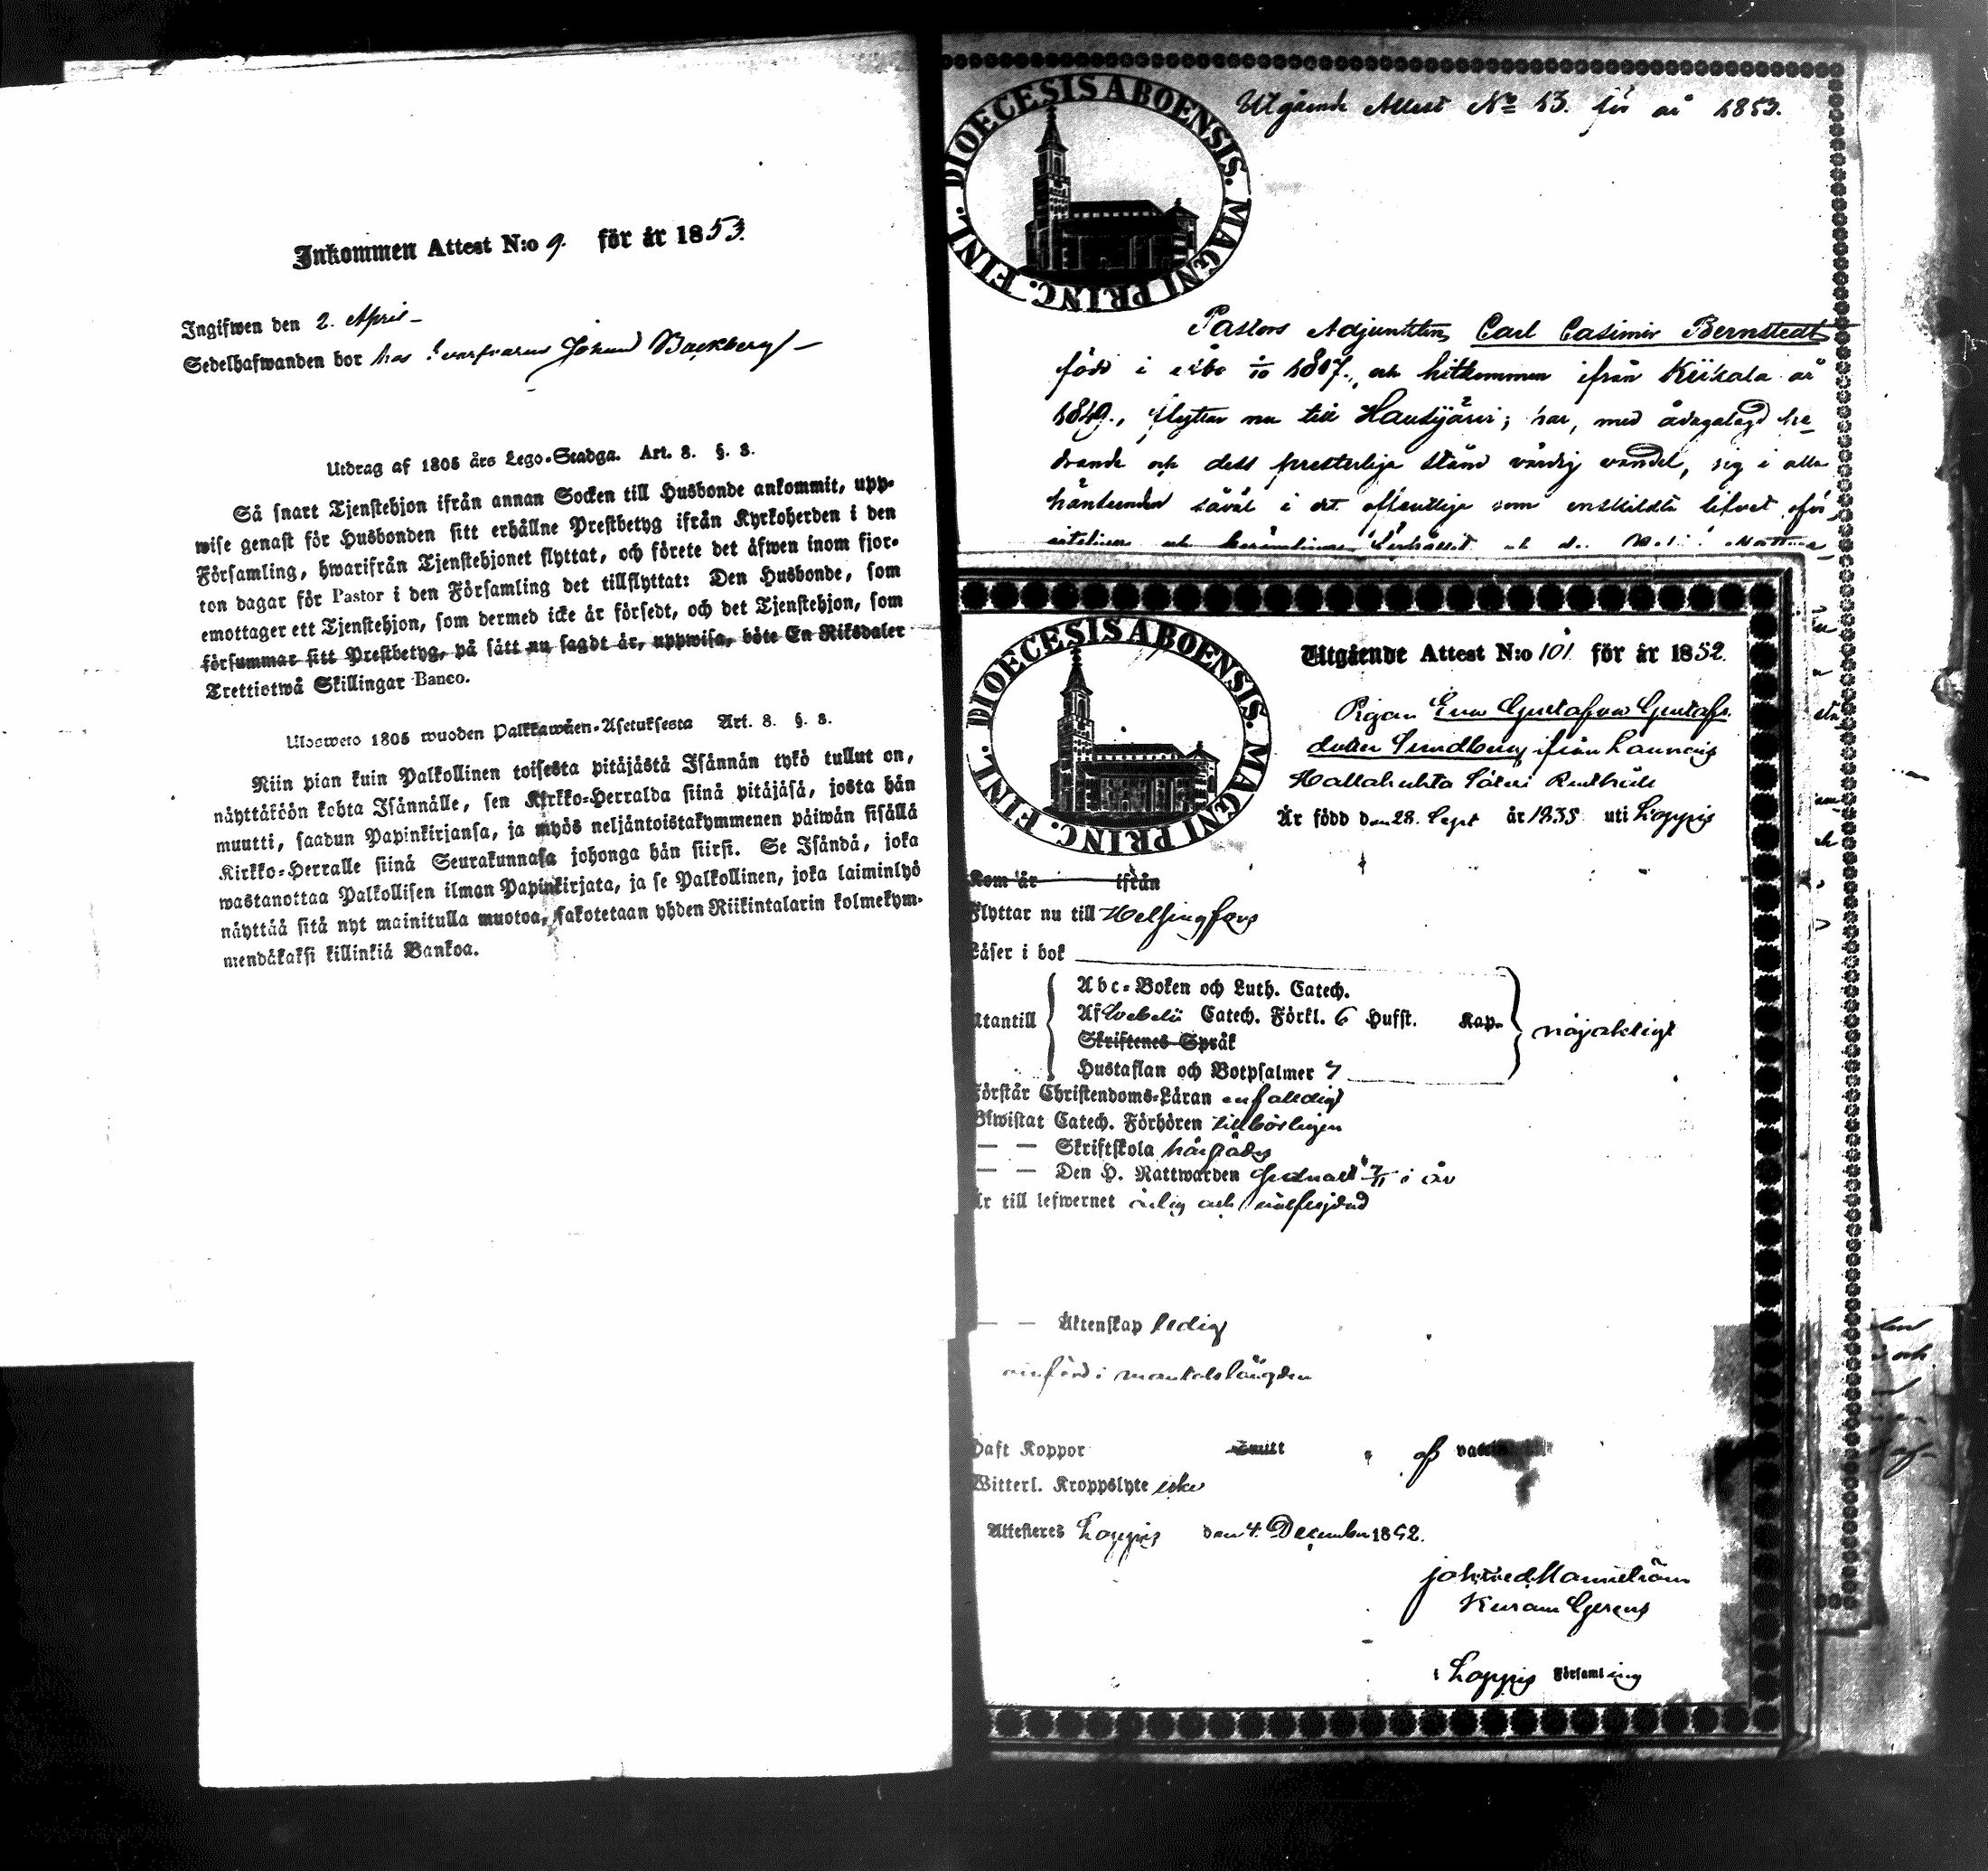 Inkommen Attest N:o 9. för år 1853.
Ingifwen den 2. April
Sedelhafwanden bor hos Johan Backberg
Utdrag af 1805 års Lego-Stadga. Art. 8. §. 8.
Så snart Tjenstehjon ifrån annan Socken till Husbonde ankommit, upp-
wise genast för Husbonden sitt erhållne Prestbetyg ifrån Kyrkoherden i den
Församling, hwarifrån Tjenstehjonet flyttat, och förete det äfwen inom fjor-
ton dagar för Pastor i den Församling det tillflyttat: Den Husbonde, som
emottager ett Tjenstehjon, som dermed icke är försedt, och det Tjenstehjon, som
försummar sitt Prestbetyg, på sätt nu sagdt är, uppwisa, böte En Riksdaler
Trettiotwå Skillingar Banco.
Uloswero 1805 wuoden Palkkawäen-Asetuksesta Art. 8. §. 8.
Niin pian kuin Palkollinen toisesta pitäjästä Isännän tykö tullut on,
näyttäköön kohta Isännälle, sen Kirkko-Herralda siinä pitäjäsä, josta hän
muutti, saadun Papinkirjansa, ja myös neljäntoistakymmenen päiwän sisällä
Kirkko-Herralle siinä Seurakunnasa johonga hän siirsi. Se Isändä, joka
wastanottaa Palkollisen ilman Papinkirjata, ja se Palkollinen, joka laiminlyö
näyttää sitä nyt mainitulla muotoa, sakotetaan yhden Riikintalarin kolmekym-
mendäkaksi killinkiä Bankoa.
DIOECESIS ABOENSIS. MAGNI PRINC. FINL.
Utgående Attest No 53. för år 1853.
Pastors Adjunkten Carl Casimir Bernstedt
född i Åbo 1807., och hitkommen ifrån Kiikala år
1849., flyttar nu till Hausjärvi; har, med ådagalagd he-
drande och dess presterliga stånd värdig vandel, sig i alla
hänseenden såväl i det offentliga som enskilda lifvet
DIOECESIS ABOENSIS. MAGNI PRINC. FINL.
Utgående Attest N:o 101 för år 1852.
Pigan Eva Gustafva Gustafs
dotter Sundberg ifrån Launois
Hallakukta Säteri
Är född den 28. Sept år 1835 uti Loppis
Kom år ifrån
Flyttar nu till Helsingfors
Läser i bok
Utantill
Abc-Boken och Luth. Catech.
Af Svebelii Catech. Förkl. 6 Hufst. Kap. nöjaktigt
Skriftenes Språk
Hustaflan och Botpsalmer 7
Förstår Christendoms-Läran enfaldigt
Bewistat Catech. Förhören tillbörligen
— — Skriftskola
— — Den H. Nattwarden i år
Är till lefwernet ärlig och välfrejdad
— — Äktenskap ledig
införd i mantalslängden
Haft Koppor vaccin
Witterl. Kroppslyte icke
Attesteras Loppis den 4. December 1852.
i Loppis Församling